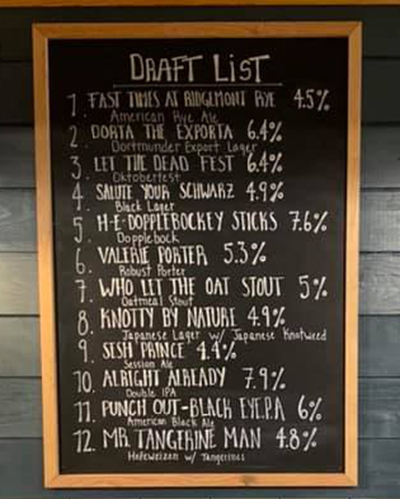 DRAFT LIST
1. FAST TIMES AT RIDGEMONT RYE 4.5%
American Rye Ale
2. DORTA THE EXPORTA 6.4%
Dortmunder Export Lager
3. LET THE DEAD FEST 6.4%
Oktoberfest
4. SALUTE YOUR SCHWARZ 4.9%
Black Lager
5. H-E-DOPPLEBOCKEY STICKS 7.6%
Dopplebock
6. VALERIE PORTER 5.3%
Robust Porter
7. WHO LET THE OAT STOUT 5%
Oatmeal Stout
8. KNOTTY BY NATURE 4.9%
Japanese Lager w/ Japanese Knotweed
9. SESH PRINCE 4.4%
Session Ale
10. ALRIGHT ALREADY 7.9%
Double IPA
11. PUNCH OUT-BLACK EYE.P.A 6%
American Black Ale
12. MR TANGERINE MAN 4.8%
Hefeweizen w/ Tangerines